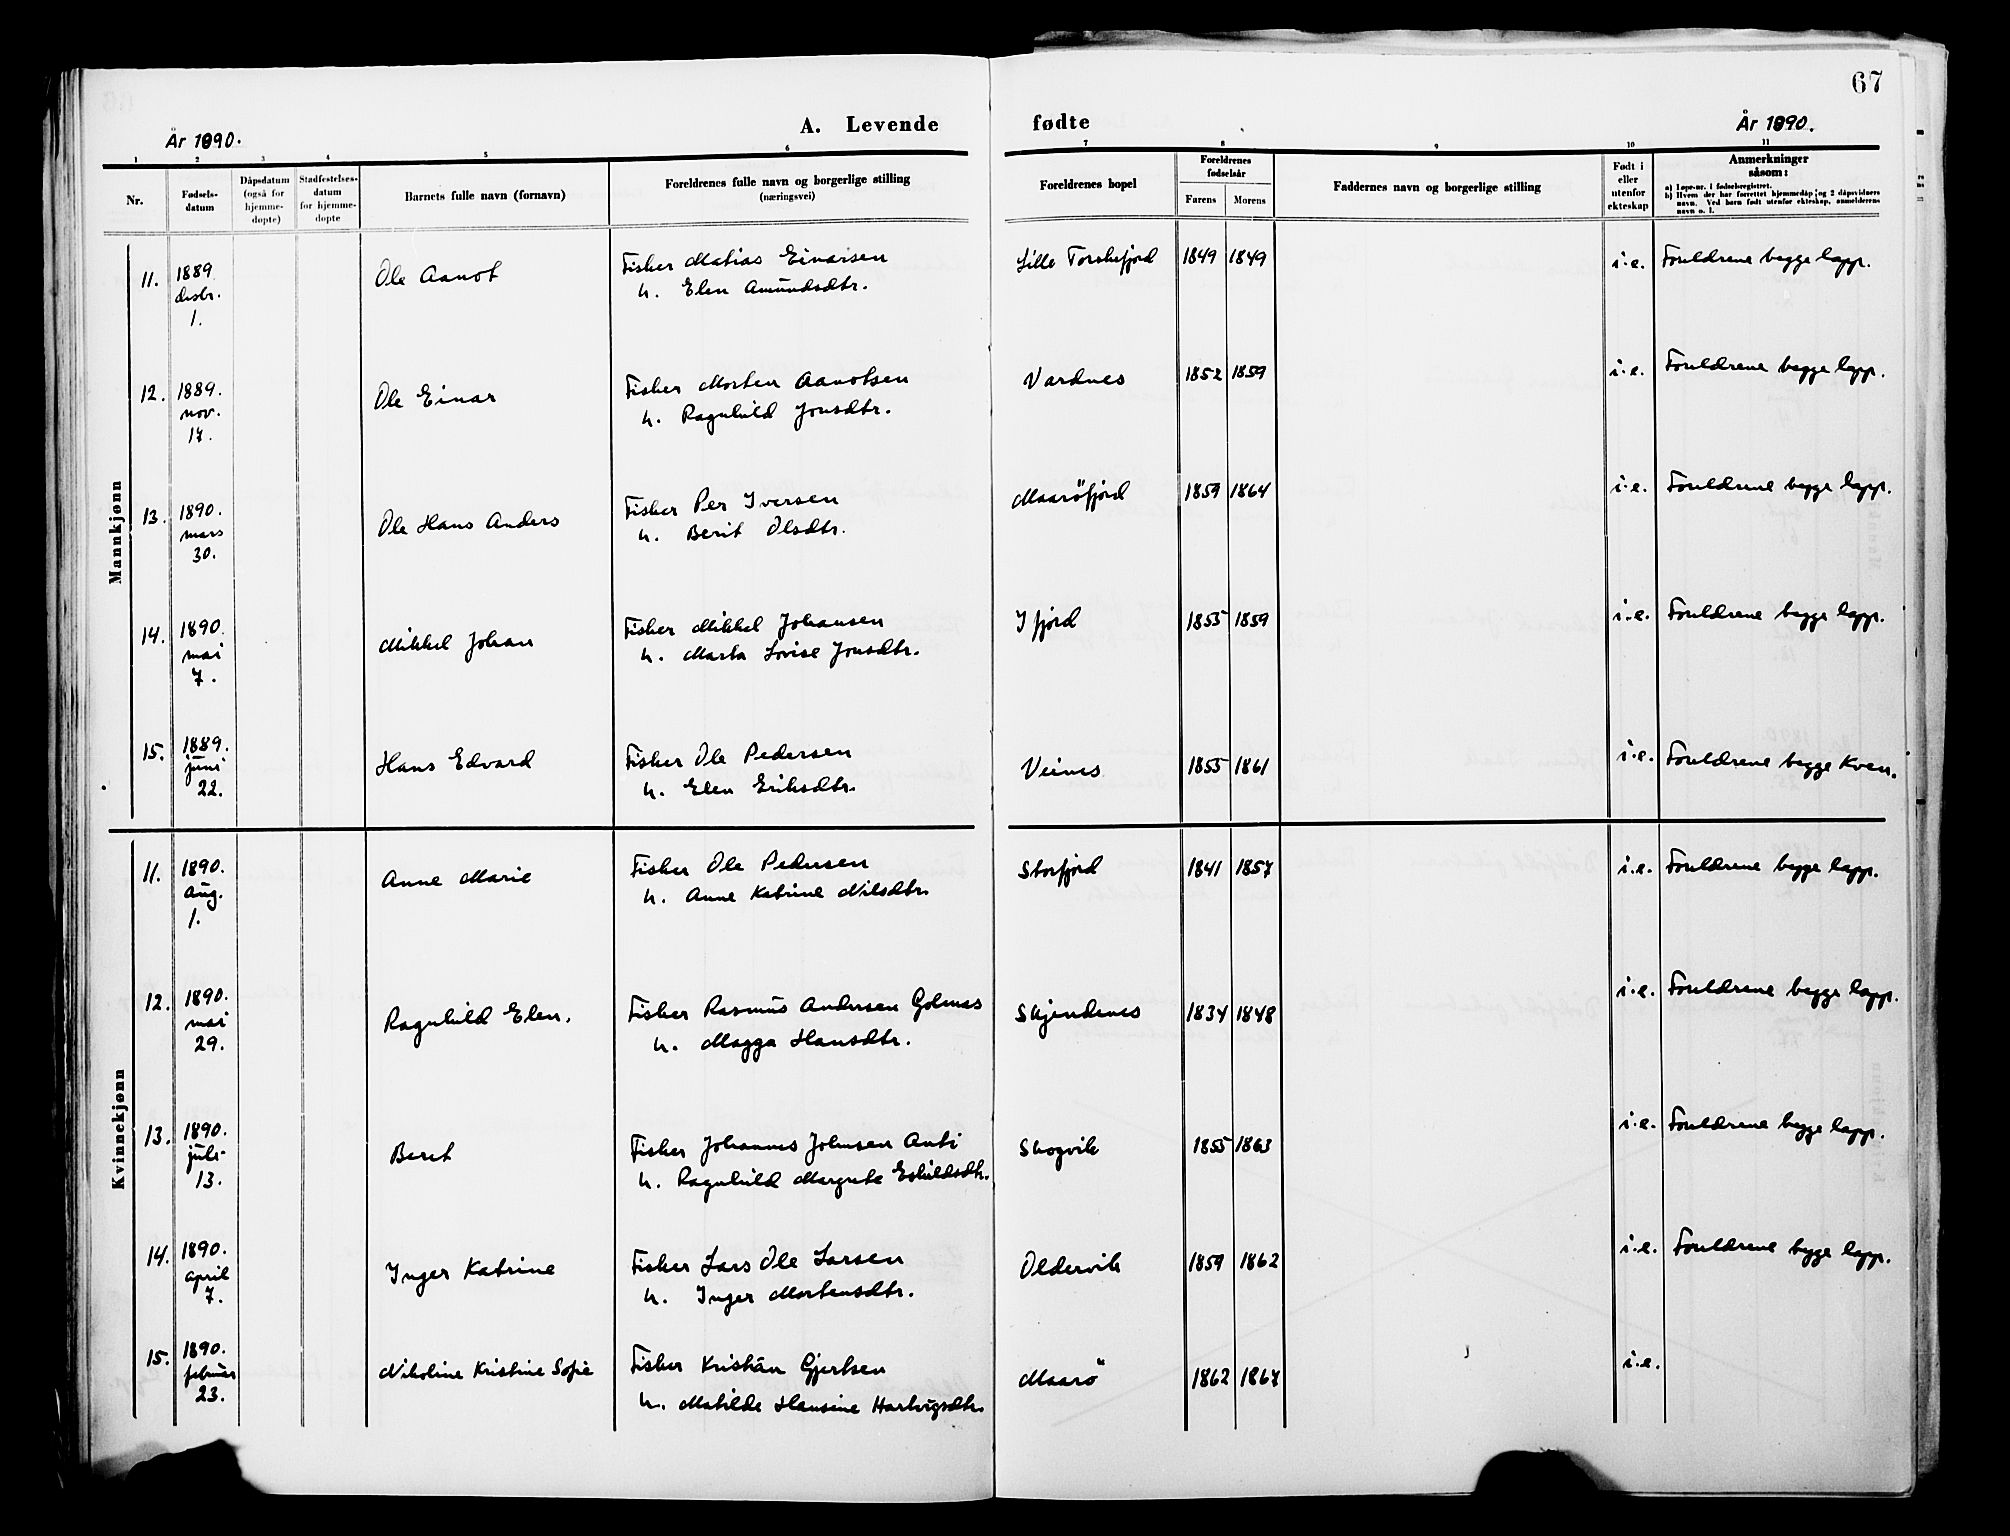 67
År 1890.
A. Levende
fødte
År 1890.
1 2 3 4 5 6 7 8 9 10 11
Nr.
Fødsels-
datum
Dåpsdatum
(også for
hjemme-
døpte)
Stadfestelses-
datum
for hjemme-
døpte
Barnets fulle navn (fornavn)
Foreldrenes fulle navn og borgerlige stilling
(næringsvei)
Foreldrenes bopel
Foreldrenes
fødselsår
Farens Morens
Faddernes navn og borgerlige stilling
Født i
eller
utenfor
ekteskap
Anmerkninger
såsom:
a) Løpe-nr. i fødselsregistret.
b) Hvem der har forrettet hjemmedåp og 2 dåpsvidners
navn. Ved barn født utenfor ekteskap, anmelderens
navn o. l.
Mannkjønn
11. 1889 desbr. 1. Ole Aanot Fisker Matias Einarsen Lille Torskefjord 1849 1849 i.e. Foreldrene begge lapp.
h. Elen Amundsdtr.
12. 1889. nov. 17. Ole Einar Fisker Morten Aanotsen Vardnes 1852 1859 i.e. Foreldrene begge lapp.
h. Ragnhild Jonsdtr.
13. 1890. mars 30. Ole Hans Anders Fisker Per Iversen Maaröfjord 1859 1864 i.e. Foreldrene begge lapp.
h. Berit Olsdtr.
14. 1890. mai 7. Mikkel Johan Fisker Mikkel Johansen Ifjord 1855 1859 i.e. Foreldrene begge lapp.
h. Marta Lovise Jonsdtr.
15. 1889. juni 22. Hans Edvard Fisker Ole Pedersen Veines 1855 1861 i.e. Foreldrene begge Kven.
h. Elen Eriksdtr.
Kvinnekjønn
11. 1890. Aug. 1. Anne Marie Fisker Ole Pedersen Storfjord 1841 1857 i.e. Foreldrene begge lapp.
h. Anne Katrine Nilsdtr.
12. 1890. mai 29. Ragnhild Elen. Fisker Rasmus Andersen Golmas Skjendenes 1834 1848 i.e. Foreldrene begge lapp.
h. Magga Hansdtr.
13. 1890. juli 13. Beret Fisker Johannes Johnsen Anti Skogvik 1855 1863 i.e. Foreldrene begge lapp.
h. Ragnhild Margrete Eskildsdtr.
14. 1890. april 7. Inger Katrine Fisker Lars Ole Larsen Oldervik 1859 1862 i.e. Foreldrene begge lapp.
h. Inger Mortensdtr.
15. 1890. februar 23. Nikoline Kristine Sofie Fisker Kristian Gjertsen Maarö 1862 1867 i.e.
h. Matilde Hansine Hartvigsdtr.